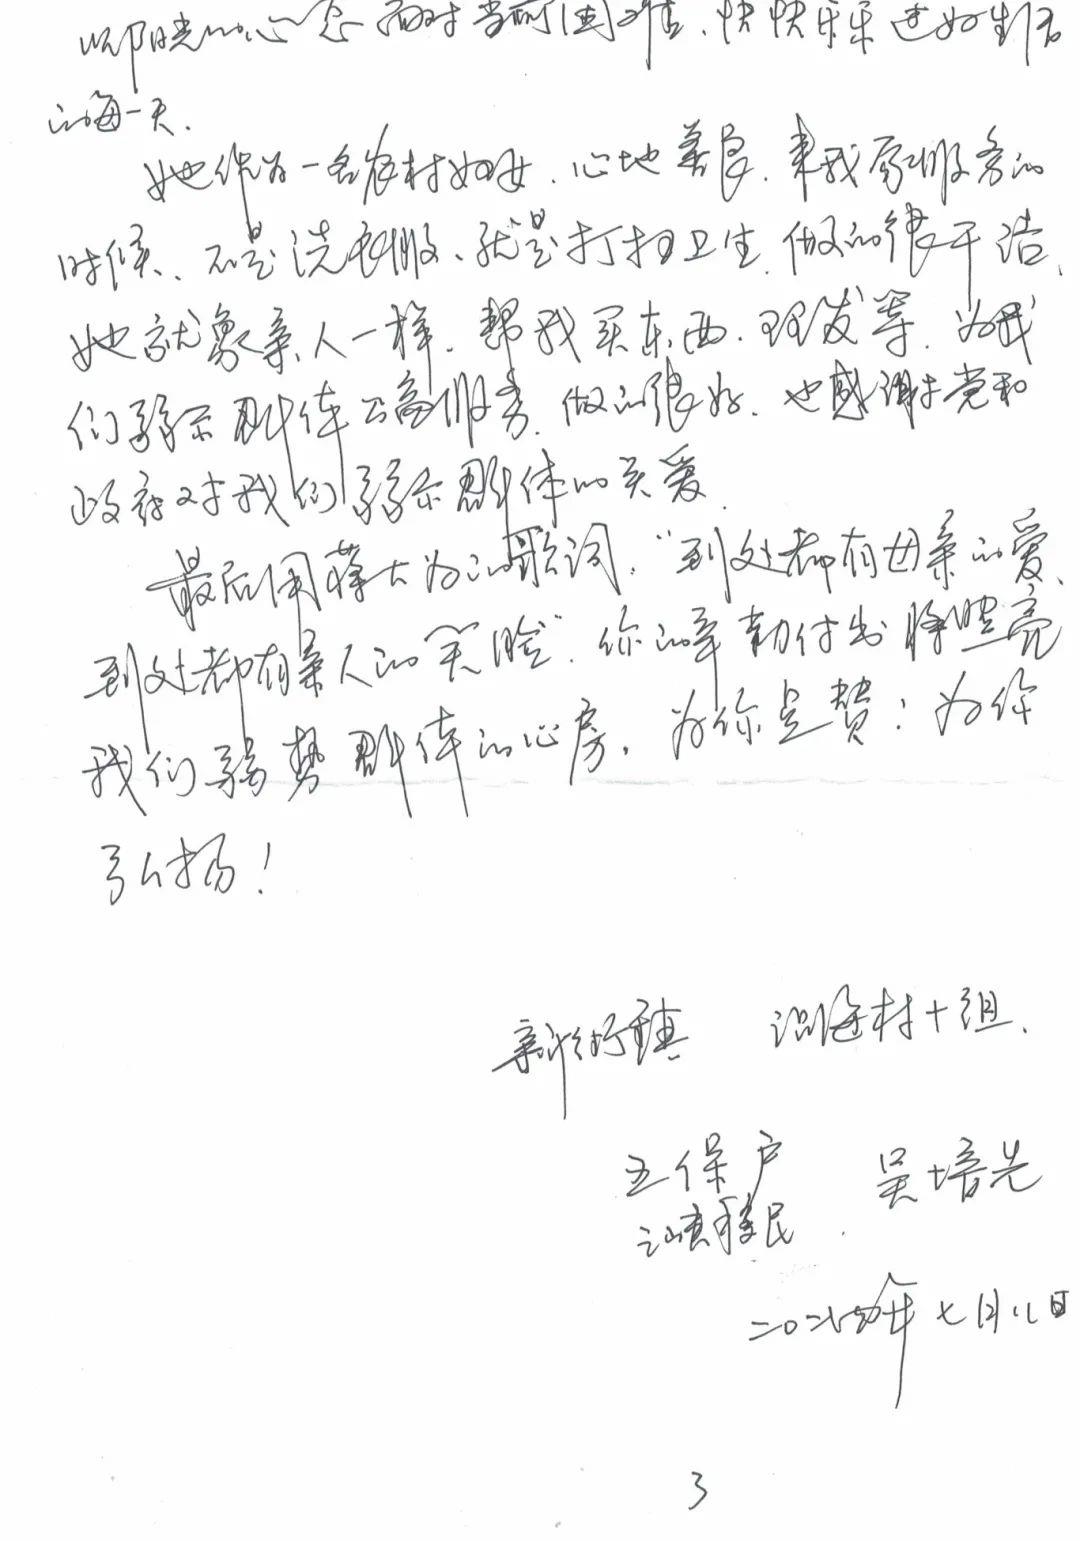 阳光的心态面对当前困难、快快乐乐过好生活
的每一天.
她作为一名农村妇女.心地善良.来我家服务的
时候、不是洗衣服、就是打扫卫生.做的很干洁、
她就象亲人一样.帮我买东西.理发等.为我
们弱示群体公商服务.做的很好.也感谢党和
政府对我们弱示群体的关爱.
最后用蒋大为的歌词,"到处都有母亲的爱、
到处都有亲人的笑脸".你的辛勤付出 将照亮
我们弱势群体的心房,为你点赞!为你
弘扬!
新街镇 海村十组.
五保户 吴培先
三峡移民.
二〇二 年七月八日
3